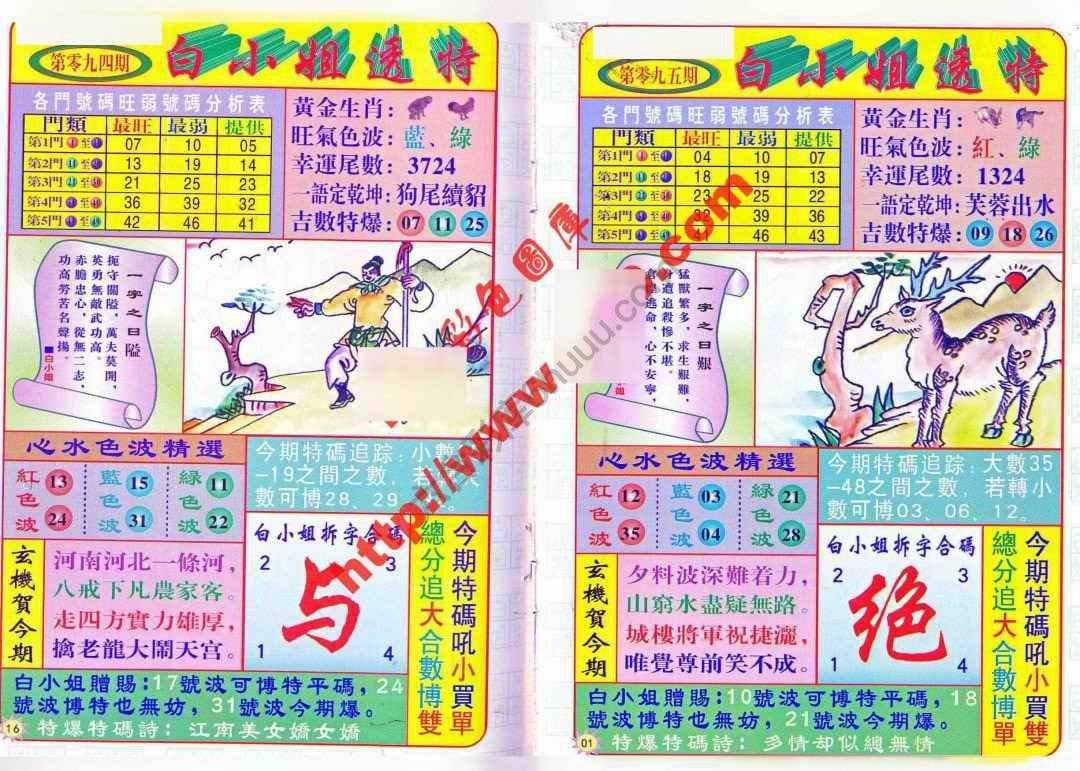 第零九四期
白小姐透特
各門號碼旺弱號碼分析表
門類 最旺 最弱 提供
第1門 07 10 05
第2門 13 19 14
第3門 21 25 23
第4門 36 39 32
第5門 42 46 41
黃金生肖：
旺氣色波：藍、綠
幸運尾數：3724
一語定乾坤：狗尾續貂
吉數特爆：07 11 25
一字之曰隘
扼守關隘，萬夫莫開，
英勇無敵武功高。
赤膽忠心，從無二志，
功高勞苦名聲揚。
白小姐
心水色波精選
紅色波 13 24
藍色波 15 31
綠色波 11 22
今期特碼追踪：小數
-19之間之數，若
數可博28、29
白小姐拆字合碼
2 3
与
1 4
總分追大合數博雙
今期特碼吼小買單
玄機賀今期
河南河北一條河，
八戒下凡農家客。
走四方實力雄厚，
擒老龍大鬧天宮。
白小姐贈賜：17號波可博特平碼，24
號波博特也無妨，31號波今期爆。
16
特爆特碼詩：江南美女嬌女嬌
第零九五期
白小姐透特
各門號碼旺弱號碼分析表
門類 最旺 最弱 提供
第1門 04 10 07
第2門 18 19 13
第3門 23 25 22
第4門 32 39 36
第5門 46 43
黃金生肖：
旺氣色波：紅、綠
幸運尾數：1324
一語定乾坤：芙蓉出水
吉數特爆：09 18 26
一字之曰艱
猛獸繁多，求生艱難，
身遭追殺慘不堪。
逃命，心不安寧，
心水色波精選
紅色波 12 35
藍色波 03 04
綠色波 21 28
今期特碼追踪：大數35
-48之間之數，若轉小
數可博03、06、12。
白小姐拆字合碼
2 3
绝
1 4
總分追大合數博單
今期特碼吼小買雙
玄機賀今期
夕料波深難着力，
山窮水盡疑無路。
城樓將軍祝捷灑，
唯覺尊前笑不成。
白小姐贈賜：10號波可博特平碼，18
號波博特也無妨，21號波今期爆。
01
特爆特碼詩：多情却似總無情
彩色圖庫
http://www.com